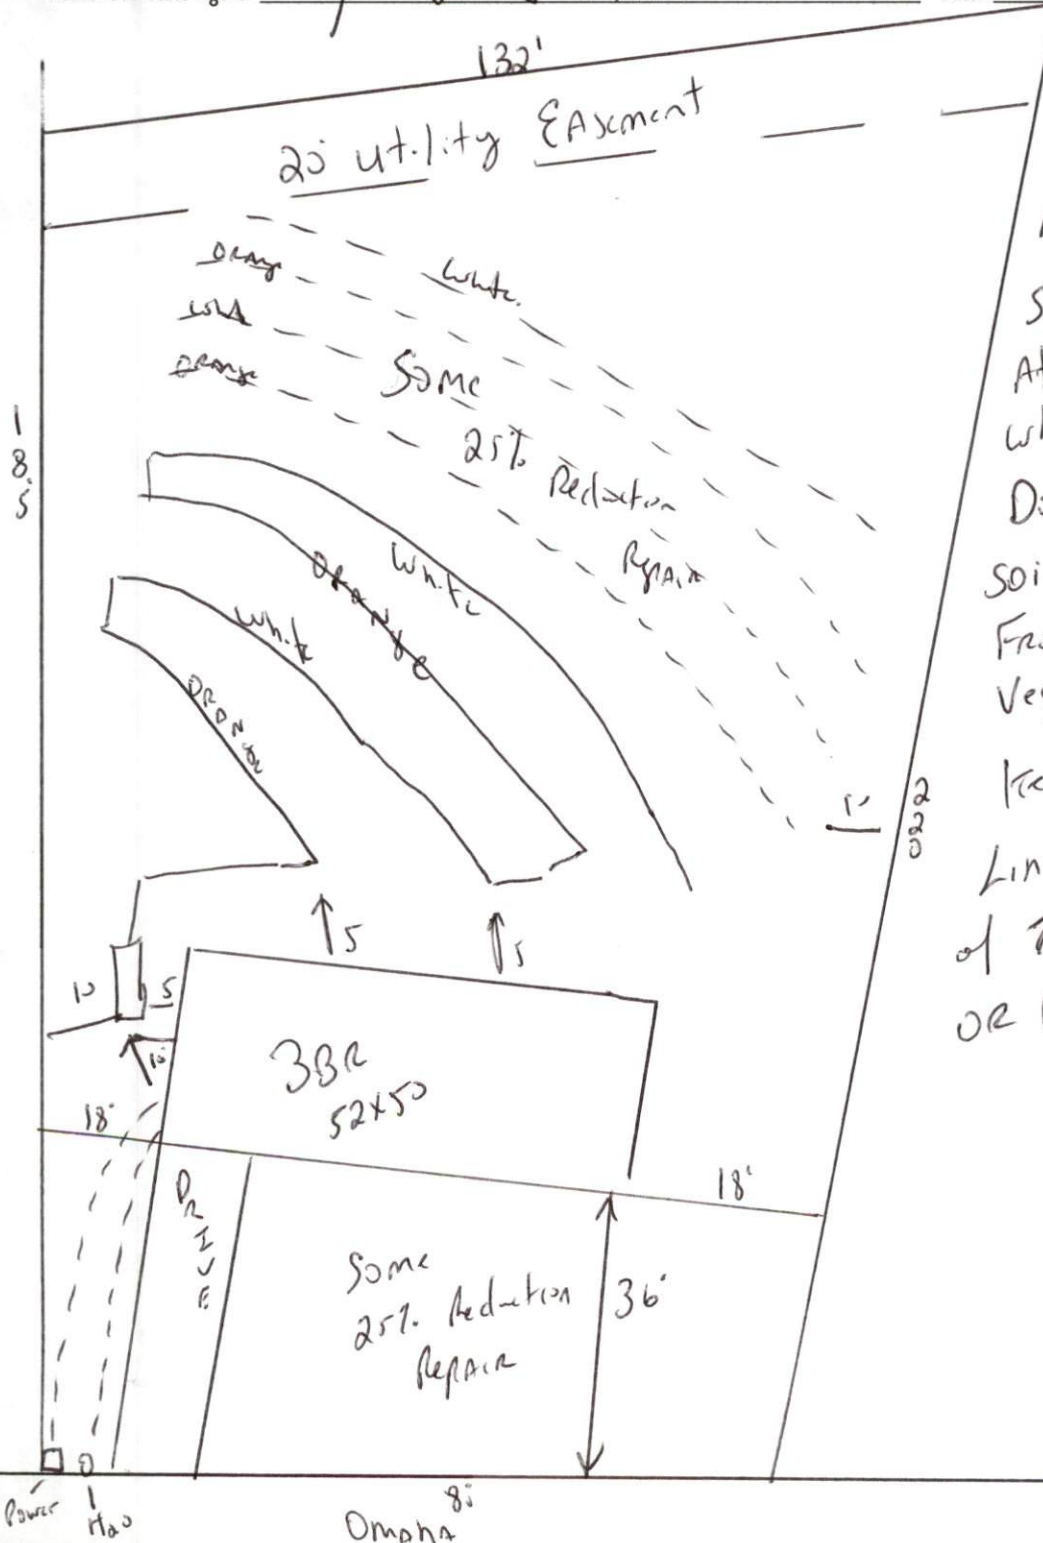 132'
20' Utility Easment
White
Orange
White
Orange
Some
25% Reduction
Repair
185
White
Orange
White
Orange
10
220
5
5
10
5
10'
3BR
52x50
18'
18'
DRIVE
Some
25% Reduction
Repair
36'
Power
H20
80
Omaha
S
At
Wh
Do
soi
Fro
Ve
Ke
Lin
of
OR